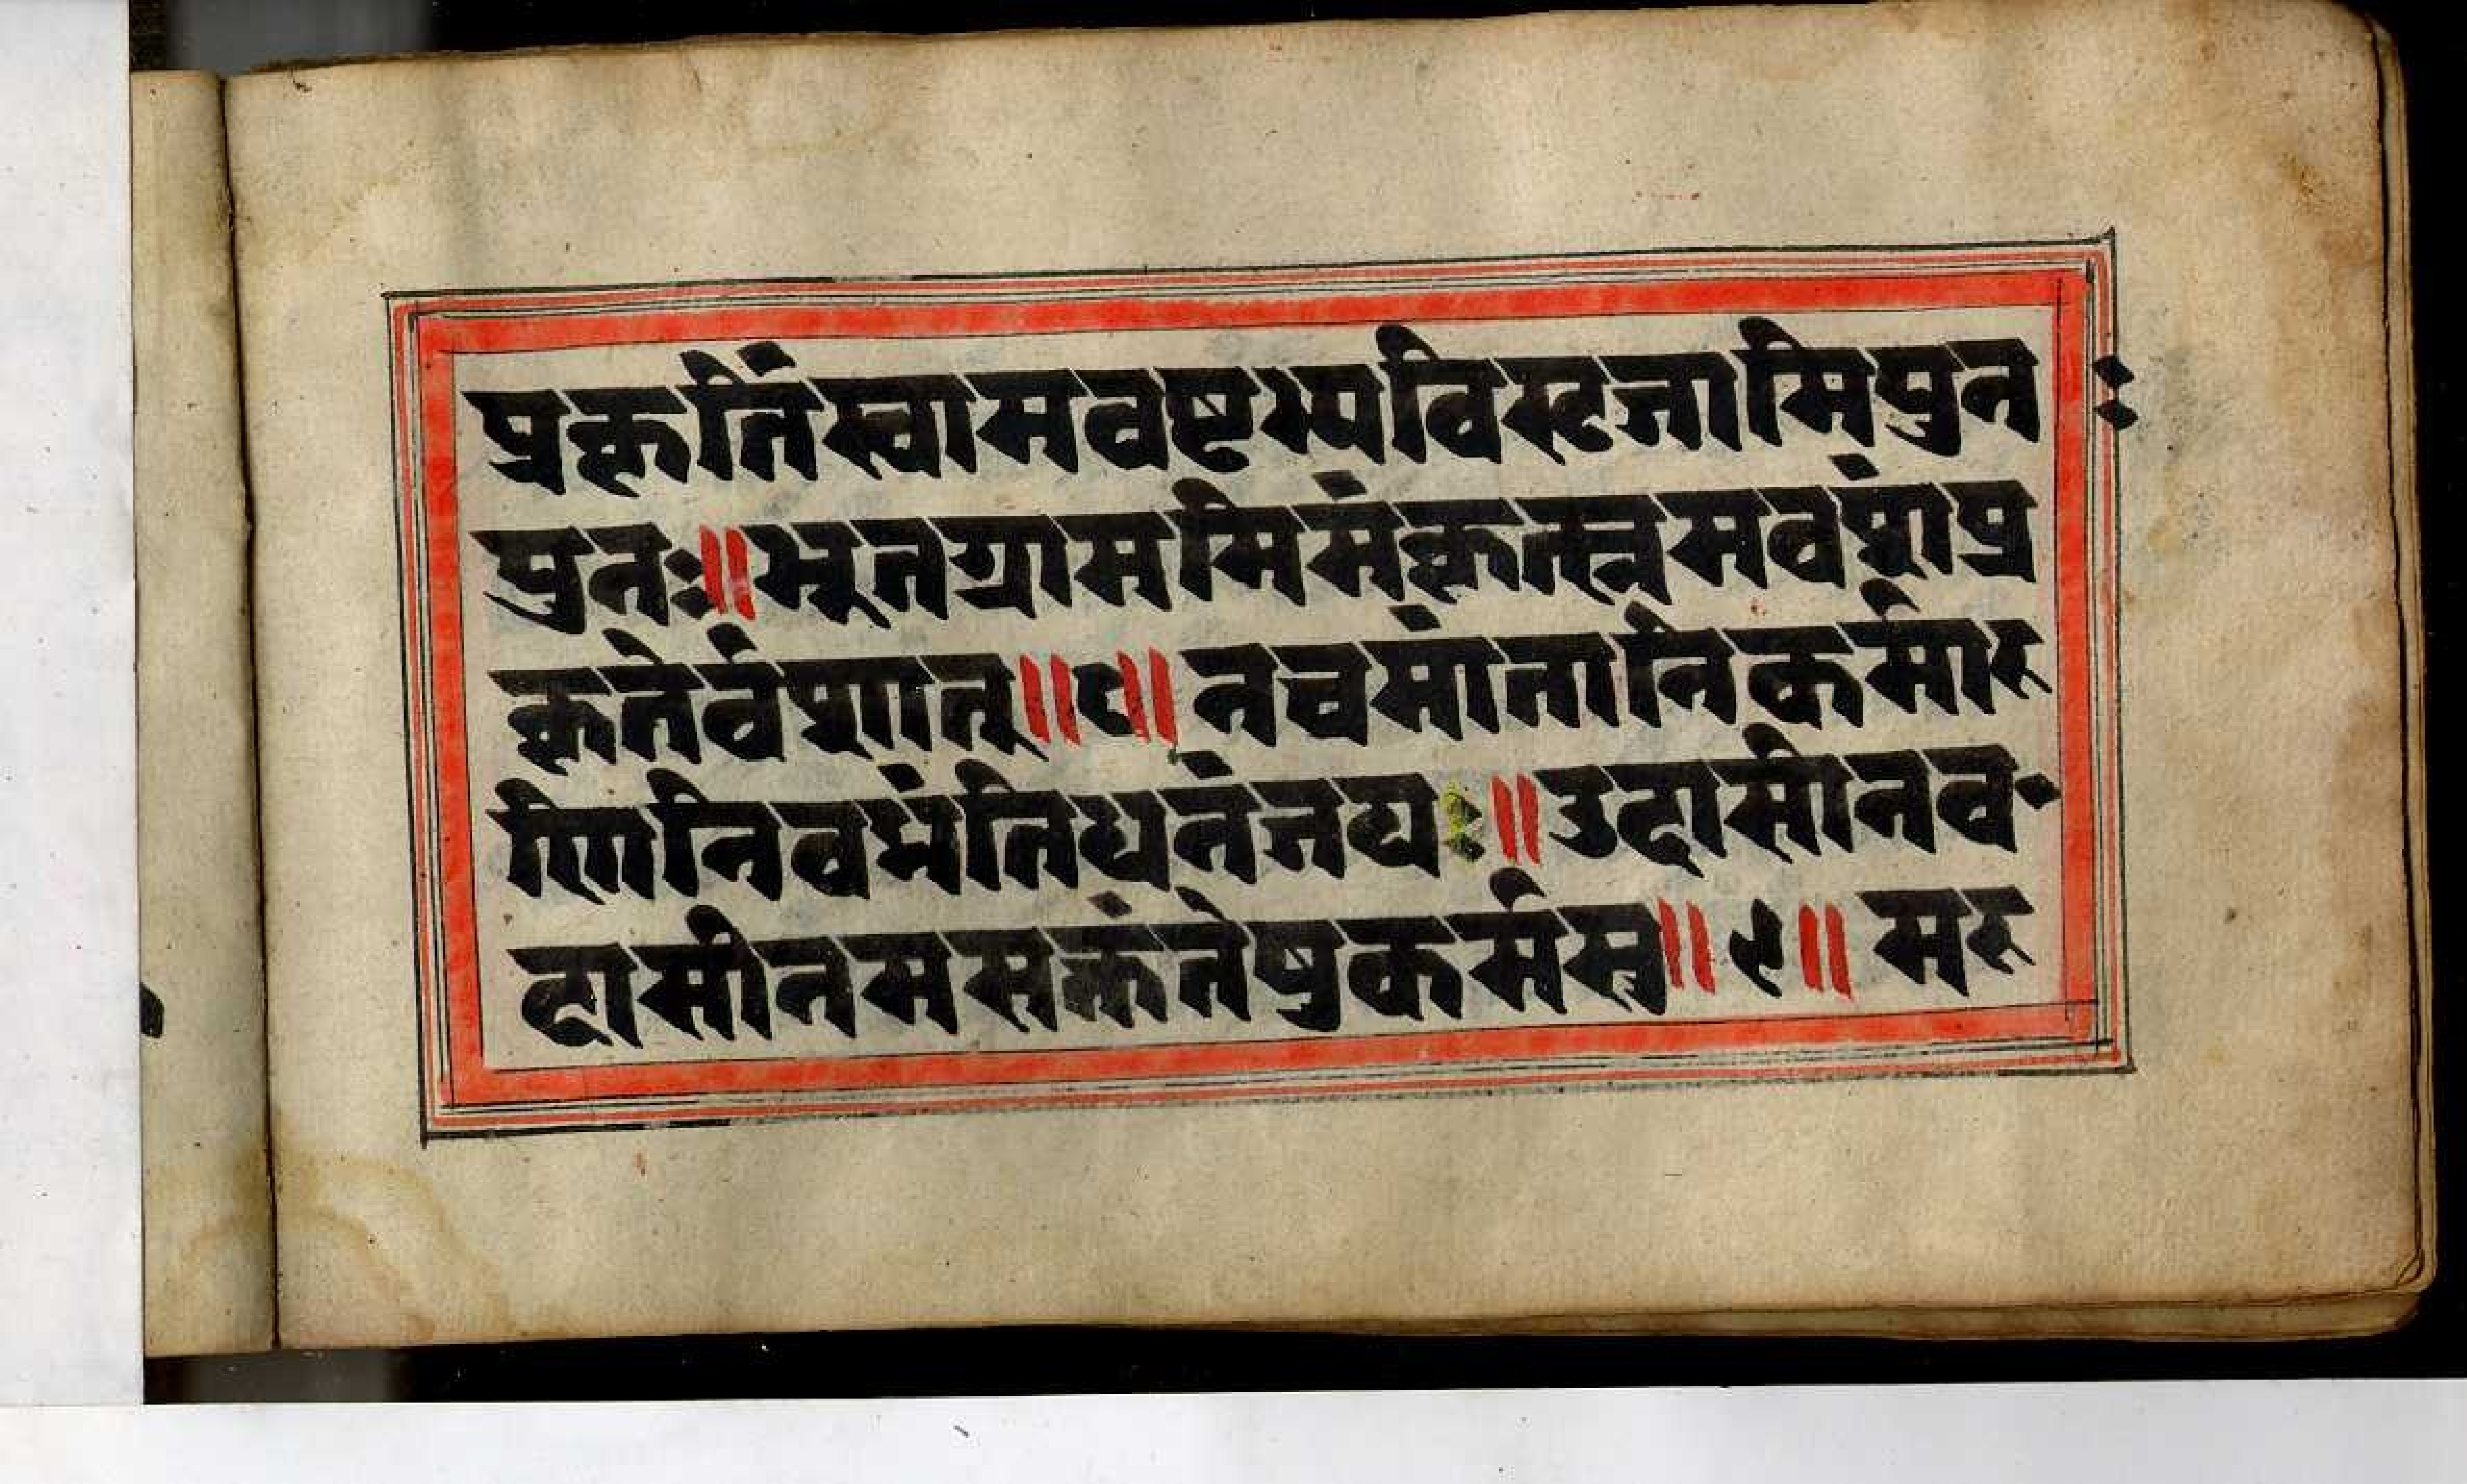 प्रकृतिंस्वामवष्टभ्यविसृजामिपुनः
पुनः॥भूतग्राममिमंकृत्स्नमवशंप्र
कृतेर्वशात्॥८॥नचमांतानिकर्मा
णिनिबध्नंतिधनंजय॥उदासीनव
दासीनमसक्तंतेषुकर्मसु॥९॥म